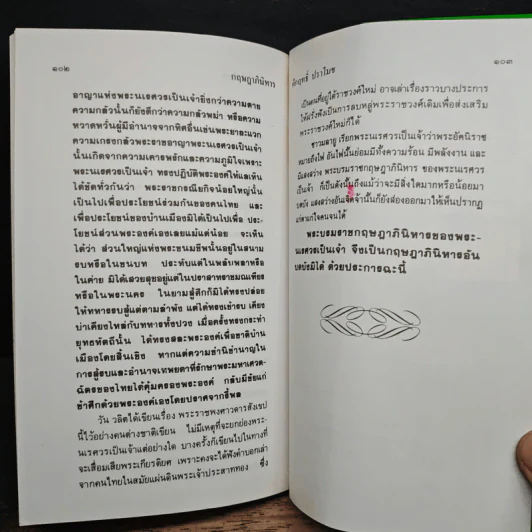 ๑๐๒
กฤษฎาภินิหาร
อาญาแห่งพระนเรศวรเป็นเจ้ายิ่งกว่าความตาย
ความกลัวนั้นก็ยังดีกว่าความกลัวพม่า หรือความ
หวาดหวั่นผู้มีอำนาจจากทิศอื่นเช่นพระยาละแวก
ความเกรงกลัวพระราชอาญาพระนเรศวรเป็นเจ้า
นั้นเกิดจากความเคารพรักและความภูมิใจเพราะ
พระนเรศวรเป็นเจ้า ทรงปฏิบัติพระองค์ให้แลเห็น
ได้ชัดทั่วกันว่า พระราชกรณียกิจน้อยใหญ่นั้น
เป็นไปเพื่อประโยชน์ร่วมกันของคนไทย และ
เพื่อประโยชน์ของบ้านเมืองมิได้เป็นไปเพื่อ ประ
โยชน์ส่วนพระองค์เองเลยแม้แต่น้อย จะเห็น
ได้ว่า ส่วนใหญ่แห่งพระชนมชีพนั้นอยู่ในสนาม
รบหรือในชนบท ประทับแต่ในพลับพลาหรือ
ในค่าย มิได้เสวยสุขอยู่แต่ในปราสาทราชมณเฑียร
หรือในพระนคร ในยามสู้ศึกก็มิได้ทรงปล่อย
ให้ทหารรบสู้แต่ตามลำพัง แต่ได้ทรงเข้ารบ เคียง
บ่าเคียงไหล่กับทหารทั้งปวง เมื่อครั้งทรงกระทำ
ยุทธหัตถีนั้น ได้ทรงสละพระองค์เพื่อชาติบ้าน
เมืองโดยสิ้นเชิง หากแต่ความชำนิชำนาญใน
การสู้รบและอำนาจเทพยดาที่รักษาพระมหาเศวต-
ฉัตรของไทยได้คุ้มครองพระองค์ กลับมีชัยแก่
ข้าศึกด้วยพระองค์เองโดยปราศจากรี้พล
วัน วลิตได้เขียนเรื่อง พระราชพงศาวดารสังเขป
นี้ไว้อย่างคนต่างชาติเขียน ไม่มีเหตุที่จะยกย่องพระ-
นเรศวรเป็นเจ้าแต่อย่างใด บางครั้งก็เขียนไปในทางที่
จะเสื่อมเสียพระเกียรติยศ เพราะคงจะได้ฟังคำบอกเล่า
จากคนไทยในสมัยแผ่นดินพระเจ้าประสาททอง ซึ่ง
คึกฤทธิ์ ปราโมช
๑๐๓
เป็นคนที่อยู่ใต้ราชวงศ์ใหม่ อาจเล่าเรื่องราวบางประการ
ให้ฝรั่งฟังเป็นการลบหลู่พระราชวงศ์เดิมเพื่อส่งเสริม
พระราชวงศ์ใหม่ก็ได้
ชาวมลายู เรียกพระนเรศวรเป็นเจ้าว่าพระอัคนิราช
หมายถึงไฟ อันไฟนั้นย่อมมีทั้งความร้อน มีพลังงาน และ
มีแสงสว่าง พระบรมราชกฤษฎาภินิหาร ของพระนเรศวร
เป็นเจ้า ก็เป็นดังนั้นถึงแม้ว่าจะมีสิ่งใดมากหรือน้อยมา
บดบัง แสงสว่างอันเจิดจ้านั้นก็ยังส่องออกมาให้เห็นปรากฏ
แก่ตาแก่ใจคนจนได้
พระบรมราชกฤษฎาภินิหารของพระ-
นเรศวรเป็นเจ้า จึงเป็นกฤษฎาภินิหารอัน
บดบังมิได้ ด้วยประการฉะนี้